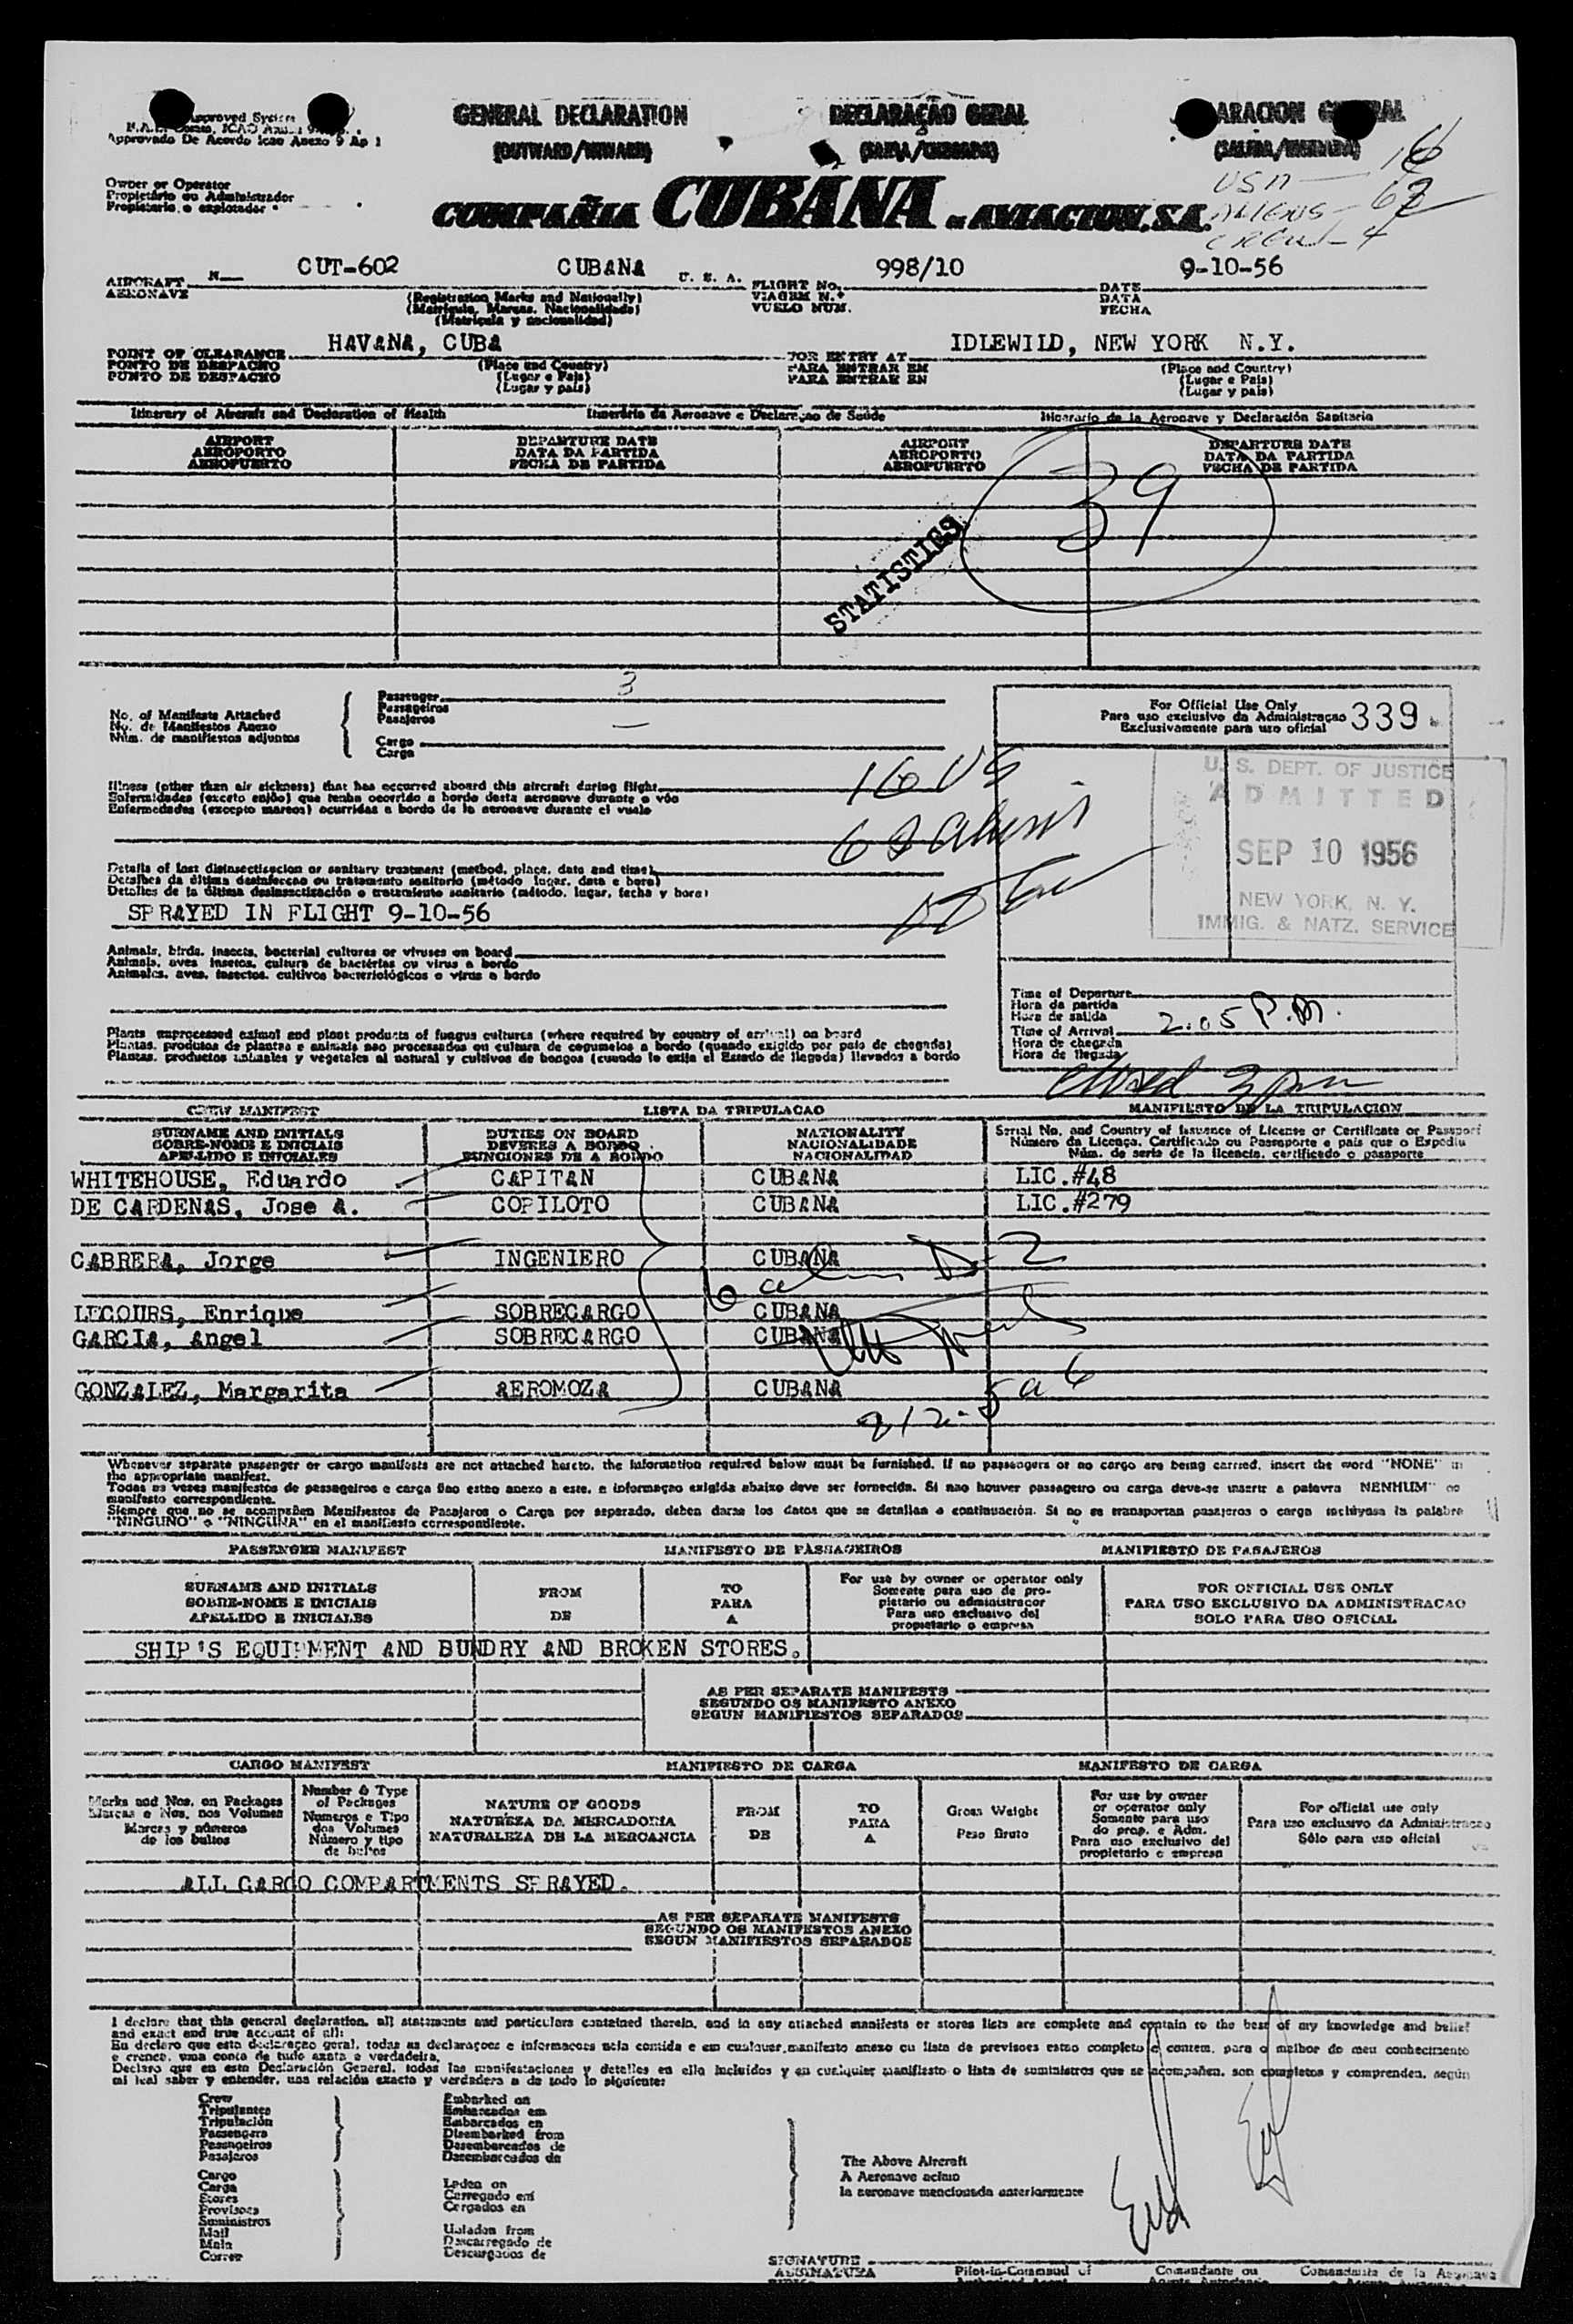 Approved System
Aprovado De Acordo Icao Anexo 9 Ap 1
GENERAL DECLARATION
(OUTWARD/INWARD)
DECLARAÇÃO GERAL
(SAIDA/CHEGADA)
ARACION
Owner or Operator
Propietário ou Administrador
Propietario o explotador
COMPAÑIA CUBANA DE AVIACION, S.A.
USA — 16
ALIENS — 62
AIRCRAFT N— CUT-602 CUBANA U. S. A. FLIGHT No. 998/10 DATE 9-10-56
AERONAVE
(Registration Marks and Nationally)
(Matricula, Marcas, Nacionalidade)
(Matricula y nacionalidad)
VIAGEM N.º
VUELO NUM.
DATA
FECHA
POINT OF CLEARANCE HAVANA, CUBA FOR ENTRY AT IDLEWILD, NEW YORK N.Y.
PONTO DE DESPACHO
PUNTO DE DESPACHO
(Place and Country)
(Lugar e Pais)
(Lugar y pais)
PARA ENTRAR EM
PARA ENTRAR EN
(Place and Country)
(Lugar e Pais)
(Lugar y pais)
Itinerary of Aircraft and Declaration of Health
Itinerário da Aeronave e Declaração de Saúde
Itinerario de la Aeronave y Declaración Sanitaria
AIRPORT
AEROPORTO
AEROPUERTO
DEPARTURE DATE
DATA DA PARTIDA
FECHA DE PARTIDA
AIRPORT
AEROPORTO
AEROPUERTO
DEPARTURE DATE
DATA DA PARTIDA
FECHA DE PARTIDA
39
STATISTICS
No. of Manifests Attached
No. de Manifestos Anexo
Núm. de manifiestos adjuntos
Passenger 3
Passageiros
Pasajeros —
Cargo
Carga
For Official Use Only
Para uso exclusivo da Administraçao
Exclusivamente para uso oficial
339
U. S. DEPT. OF JUSTICE
ADMITTED
SEP 10 1956
NEW YORK, N. Y.
IMMIG. & NATZ. SERVICE
Illness (other than air sickness) that has occurred aboard this aircraft during flight
Enfermidades (exceto enjôo) que tenha ocorrido a bordo desta aeronave durante o vôo
Enfermedades (excepto mareos) ocurridas a bordo de la aeronave durante el vuelo
16 US
62 aliens
Details of last disinsectisacion or sanitary treatment (method, place, date and time)
Detalhes da última desinfeccao ou tratamento sanitario (método lugar, data e hora)
Detalles de la última desinsectización o tratamiento sanitario (método, lugar, fecha y hora)
SPRAYED IN FLIGHT 9-10-56
Animals, birds, insects, bacterial cultures or viruses on board
Animals, aves insetos, cultura de bactérias ou virus a bordo
Animales, aves, insectos, cultivos bacteriológicos o virus a bordo
Plants unprocessed animal and plant products of fungus cultures (where required by country of arrival) on board
Plantas, produtos de plantas e animais nao processados ou cultura de cogumelos a bordo (quando exigido por pais de chegada)
Plantas, productos animales y vegetales al natural y cultivos de hongos (cuando lo exija el Estado de llegada) llevados a bordo
Time of Departure
Hora da partida
Hora de salida
Time of Arrival 2:05 P.M.
Hora de chegada
Hora de llegada
closed 3 pm
CREW MANIFEST LISTA DA TRIPULACAO MANIFIESTO DE LA TRIPULACION
SURNAME AND INITIALS
SOBRE-NOME E INICIAIS
APELLIDO E INICIALES
DUTIES ON BOARD
DEVERES A BORDO
FUNCIONES DE A BORDO
NATIONALITY
NACIONALIDADE
NACIONALIDAD
Serial No. and Country of Issuance of License or Certificate or Passport
Número da Licença, Certificado ou Passaporte e pais que o Expediu
Núm. de serie de la licencia, certificado o pasaporte
WHITEHOUSE, Eduardo CAPITAN CUBANA LIC.#48
DE CARDENAS, Jose A. COPILOTO CUBANA LIC.#279
CABRERA, Jorge INGENIERO CUBANA
LECOURS, Enrique SOBRECARGO CUBANA
GARCIA, Angel SOBRECARGO CUBANA
GONZALEZ, Margarita AEROMOZA CUBANA
6 D-2
212-5 a 6
Whenever separate passenger or cargo manifests are not attached hereto, the information required below must be furnished. If no passengers or no cargo are being carried, insert the word "NONE" in
the appropriate manifest.
Todas as vezes manifestos de passageiros e carga nao estao anexo a este, a informaçao exigida abaixo deve ser fornecida. Si nao houver passageiro ou carga deve-se inserir a palavra NENHUM" no
manifesto correspondiente.
Siempre que no se acompañen Manifiestos de Pasajeros o Carga por separado, deben darse los datos que se detallan a continuación. Si no se transportan pasajeros o carga inclúyase la palabra
"NINGUNO" o "NINGUNA" en el manifiesto correspondiente.
PASSENGER MANIFEST MANIFESTO DE PASSAGEIROS MANIFIESTO DE PASAJEROS
SURNAME AND INITIALS
SOBRE-NOME E INICIAIS
APELLIDO E INICIALES
FROM
DE
TO
PARA
A
For use by owner or operator only
Somente para uso de pro-
pietario ou administrador
Para uso exclusivo del
propietario o empresa
FOR OFFICIAL USE ONLY
PARA USO EXCLUSIVO DA ADMINISTRACAO
SOLO PARA USO OFICIAL
SHIP'S EQUIPMENT AND BUNDRY AND BROKEN STORES.
AS PER SEPARATE MANIFESTS
SEGUNDO OS MANIFESTO ANEXO
SEGUN MANIFIESTOS SEPARADOS
CARGO MANIFEST MANIFIESTO DE CARGA MANIFESTO DE CARGA
Marks and Nos. on Packages
Marcas e Nos. nos Volumes
Marcas y números
de los bultos
Number & Type
of Packages
Numeros e Tipo
dos Volumes
Número y tipo
de bultos
NATURE OF GOODS
NATUREZA DA MERCADORIA
NATURALEZA DE LA MERCANCIA
FROM
DE
TO
PARA
A
Gross Weight
Peso Bruto
For use by owner
or operator only
Somente para uso
do prop. e Adm.
Para uso exclusivo del
propietario o empresa
For official use only
Para uso exclusivo da Administracao
Sólo para uso oficial
ALL CARGO COMPARTMENTS SPRAYED.
AS PER SEPARATE MANIFESTS
SEGUNDO OS MANIFESTOS ANEXO
SEGUN MANIFIESTOS SEPARADOS
I declare that this general declaration, all statements and particulars contained therein, and in any attached manifests or stores lists are complete and contain to the best of my knowledge and belief
and exact and true account of all:
Eu declaro que esta declaraçao geral, todas as declaraçoes e informacoes nela contida e em cualquer manifesto anexo ou lista de previsoes estao completo e contem, para o melhor do meu conhecimento
e crence, uma conta de tudo axata e verdadeira.
Declaro que en esta Declaración General, todas las manifestaciones y detalles en ella incluidos y en cualquier manifiesto o lista de suministros que se acompañen, son completos y comprenden, según
mi leal saber y entender, una relación exacta y verdadera a de todo lo siguiente:
Crew
Tripulantes
Tripulación
Passengers
Passageiros
Pasajeros
Embarked on
Embarcados em
Embarcados en
Disembarked from
Desembarcados de
Desembarcados de
Cargo
Carga
Stores
Provisoes
Suministros
Mail
Mala
Correo
Laden on
Carregado em
Cargados en
Unladen from
Descarregado de
Descargados de
The Above Aircraft
A Aeronave acima
la aeronave mencionada anteriormente
SIGNATURE
ASSINATURA
Pilot-in-Command of
Comandante ou
Comandante de la Aeronave